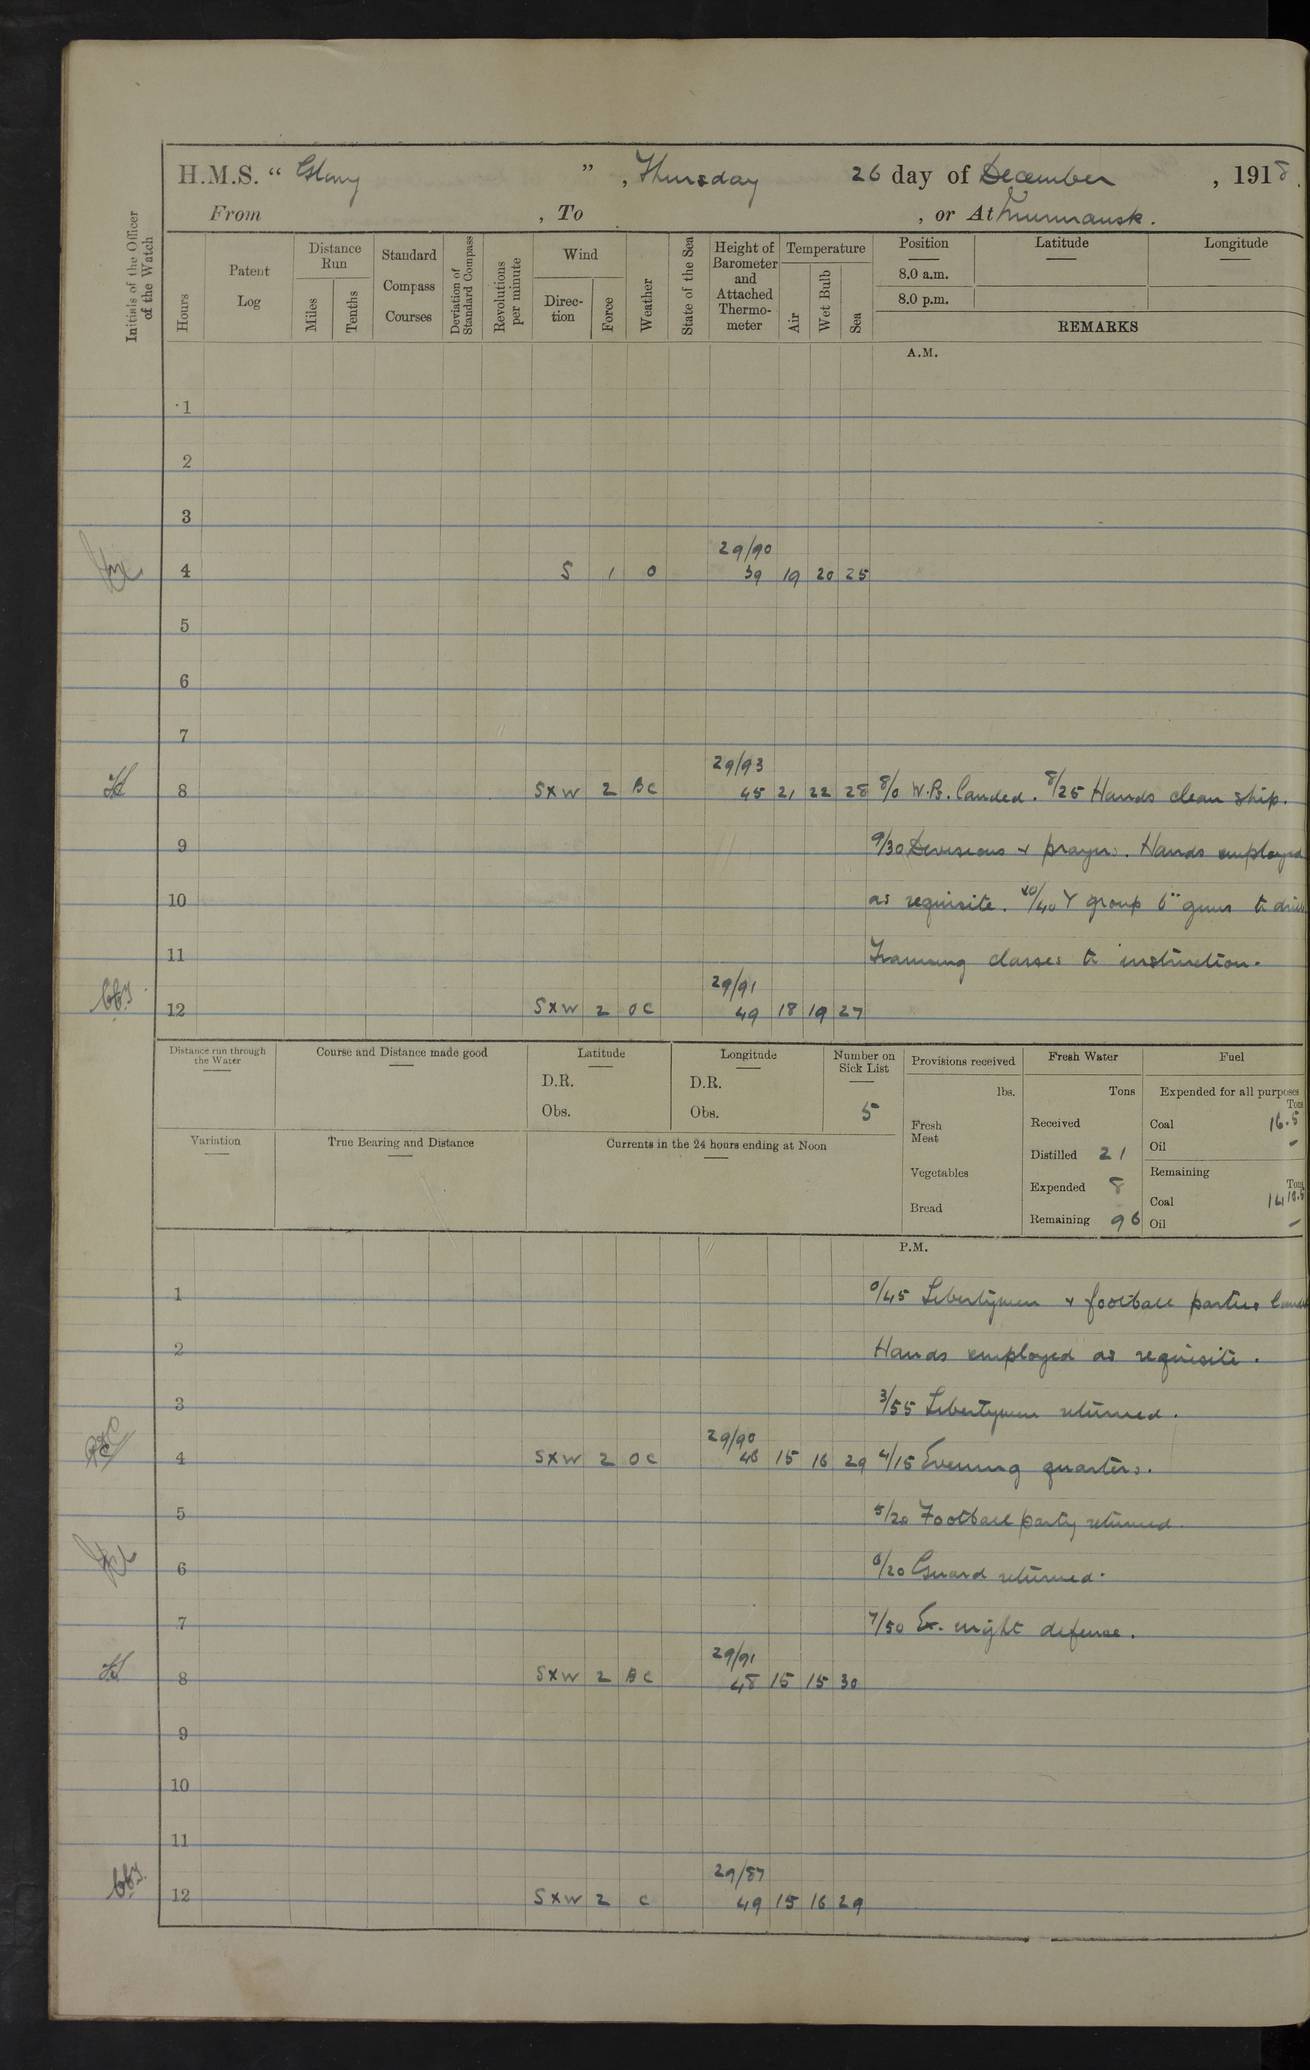 H.M.S. “ Glory ” , Thursday 26 day of December , 1918.
From , To , or At Murmansk.
Initials of the Officer of the Watch
Hours
Patent Log
Distance Run
Miles
Tenths
Standard Compass Courses
Deviation of Standard Compass
Revolutions per minute
Wind
Direc-tion
Force
Weather
State of the Sea
Height of Barometer and Attached Thermo-meter
Temperature
Air
Wet Bulb
Sea
Position
Latitude
Longitude
8.0 a.m.
8.0 p.m.
REMARKS
A.M.
1
2
3
29/90
4 S 1 O 39 19 20 25
5
6
7
29/93
8 SXW 2 BC 45 21 22 28 8/0 W.P. landed. 8/25 Hands clean ship.
9 9/30 Divisions & prayers. Hands employed
10 as requisite. 10/40 Y group 6" guns to drill
11 Training classes to instruction.
29/91
12 SXW 2 OC 49 18 19 27
Distance run through the Water
Course and Distance made good
Latitude
D.R.
Obs.
Longitude
D.R.
Obs.
Number on Sick List
5
Variation
True Bearing and Distance
Currents in the 24 hours ending at Noon
Provisions received
lbs.
Fresh Meat
Vegetables
Bread
Fresh Water
Tons
Received
Distilled 21
Expended 8
Remaining 96
Fuel
Expended for all purposes
Tons
Coal 16.5
Oil -
Remaining
Tons
Coal
Oil -
P.M.
1 0/45 Libertymen & football parties landed
2 Hands employed as requisite.
3 3/55 Libertymen returned.
29/90
4 SXW 2 OC 46 15 16 29 4/15 Evening quarters.
5 5/20 Football party returned.
6 6/20 Guard returned.
7 7/50 Ex. night defense.
29/91
8 SXW 2 BC 48 15 15 30
9
10
11
29/87
12 SXW 2 C 49 15 16 29